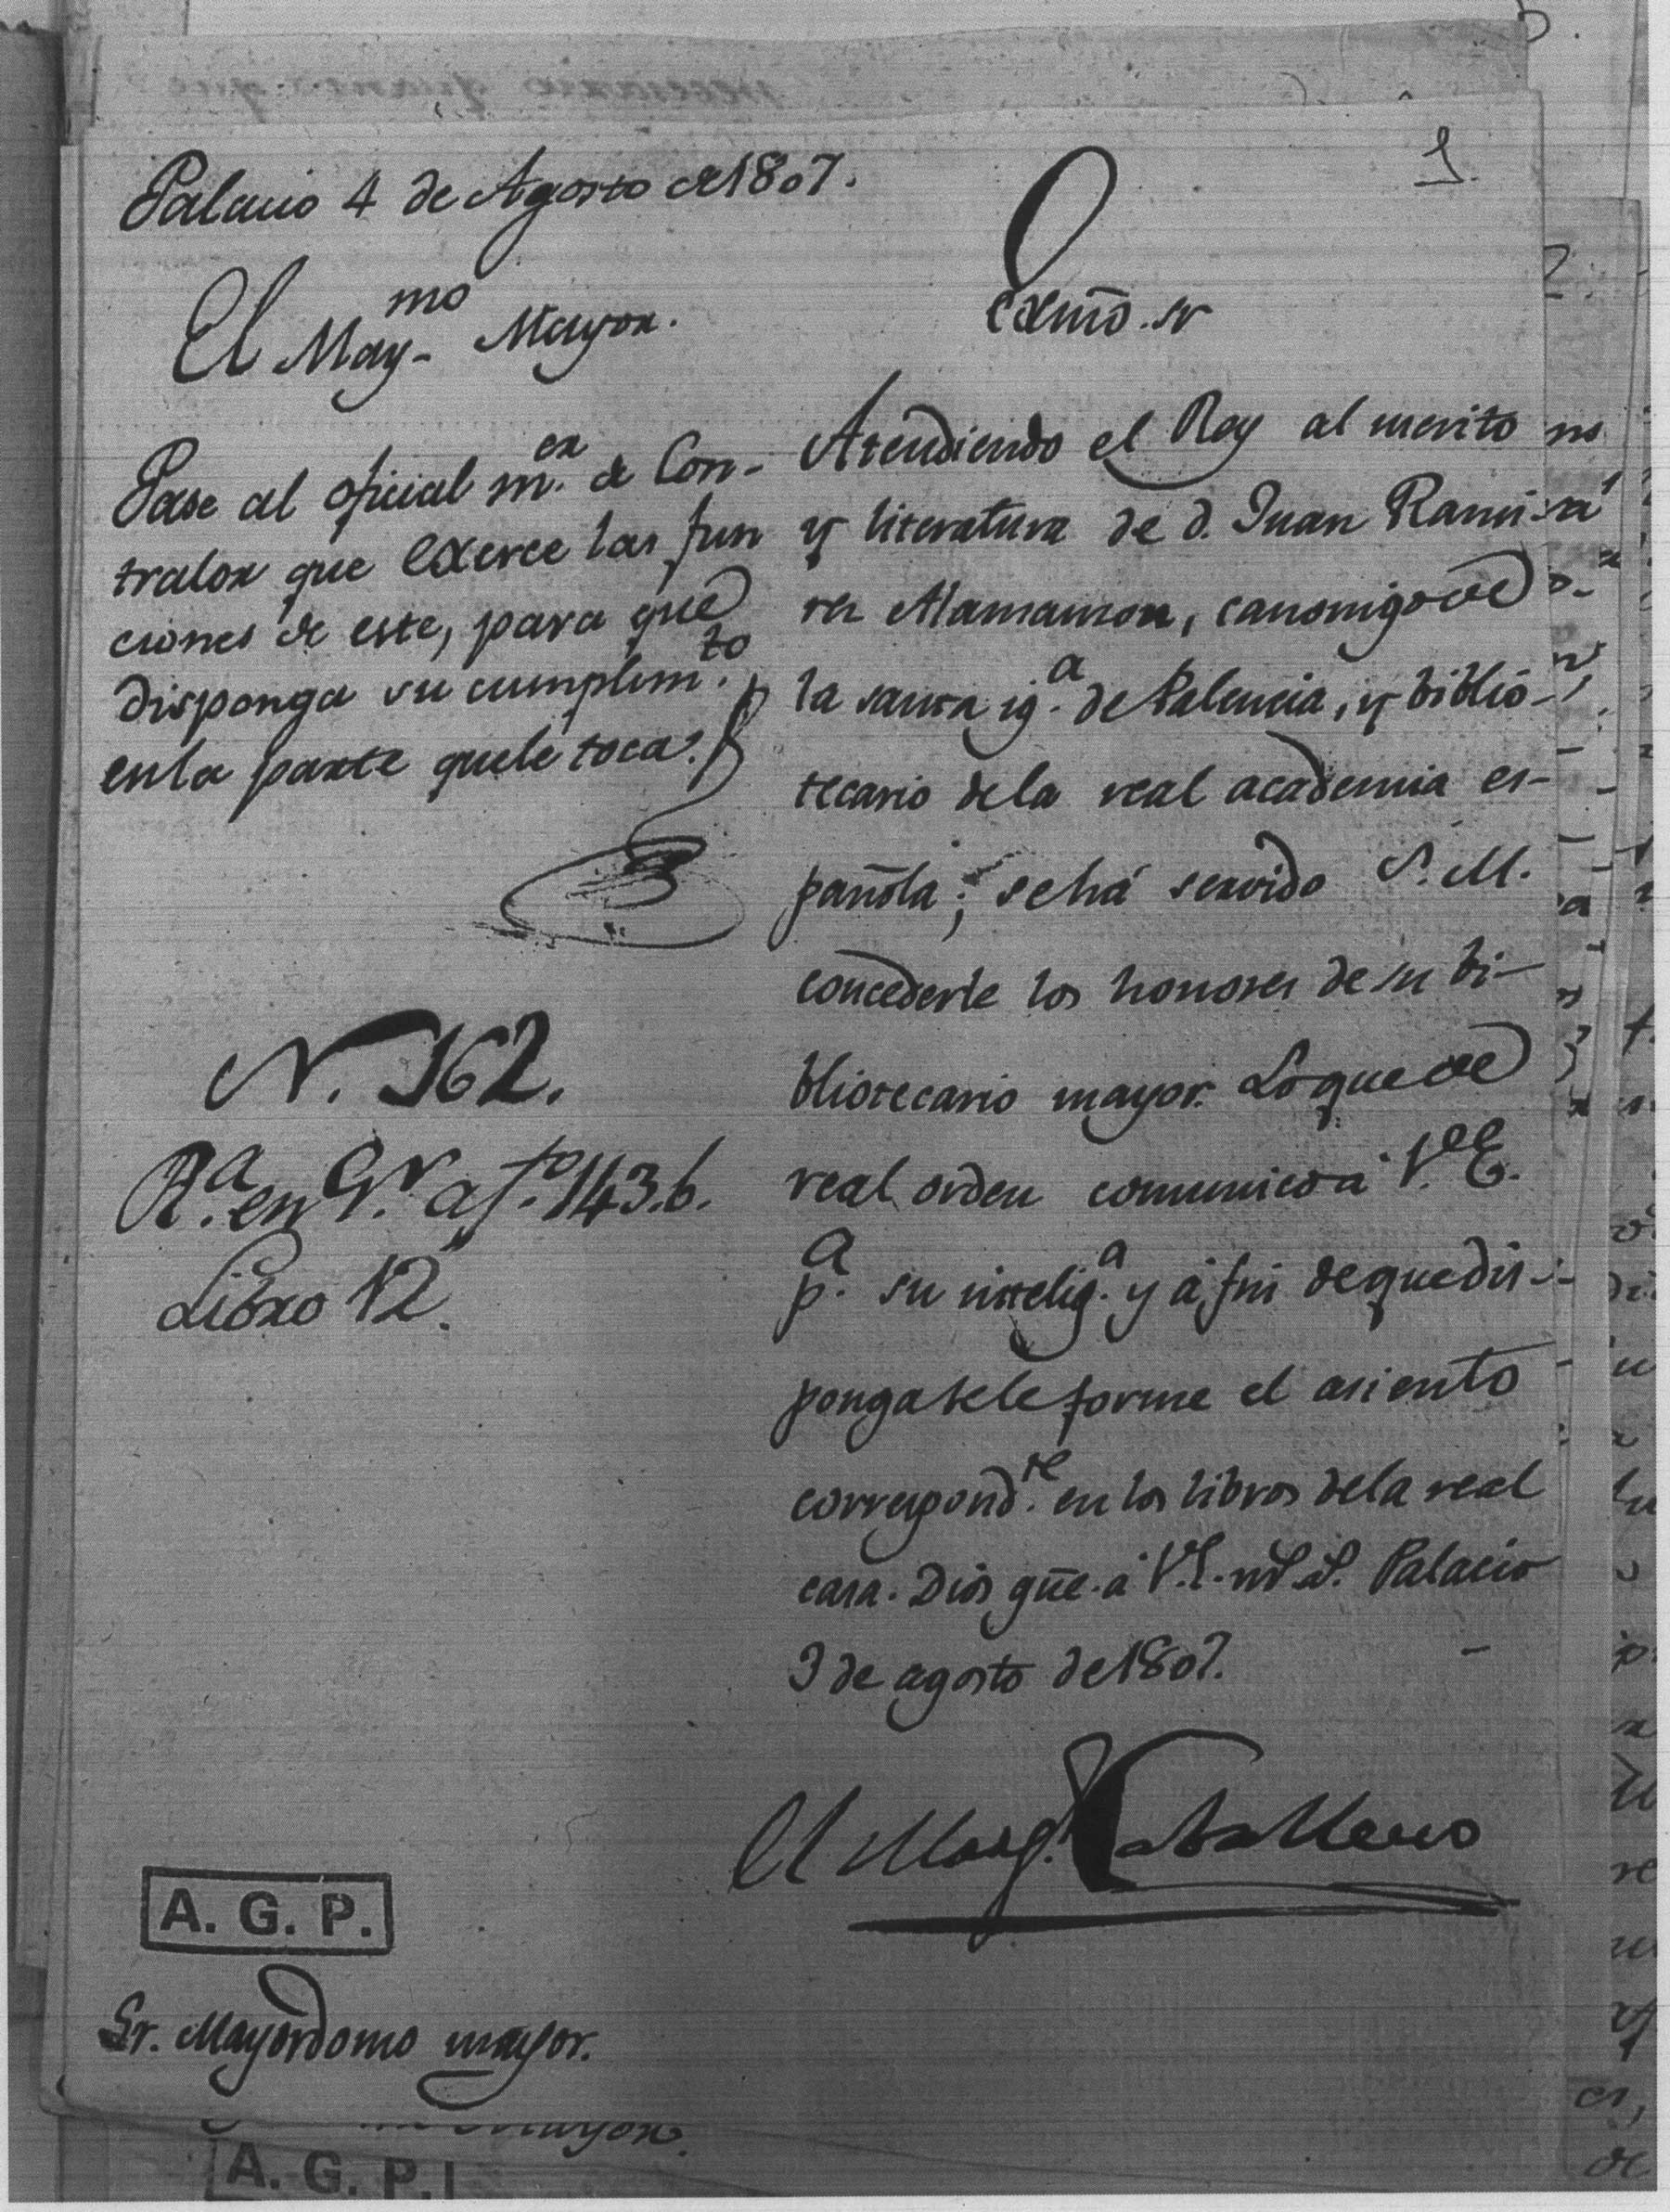 1.
Palacio 4 de Agosto de 1807.
El May.mo Mayor.
Pase al oficial m.or de Con-
tralor que exerce las fun
ciones de este, para que
disponga su cumplim.to
en la parte que le toca.
N. 162.
R.a en G.r a f.o 143.b.
Libro 12.
Exmo. sr
Atendiendo el Rey al merito
y literatura de d. Juan Rami-
rez Alamanzon, canonigo de
la santa ig.a de Palencia, y biblio-
tecario de la real academia es-
pañola; se há servido S. M.
concederle los honores de su bi-
bliotecario mayor. Lo que de
real orden comunico á V.E.
p.a su intelig.a y á fin de que dis-
ponga se le forme el asiento
correspond.te en los libros de la real
casa. Dios gue. á V.E. m.s a.s Palacio
3 de agosto de 1807.
El Marq.s Caballero
A. G. P.
Sr. Mayordomo mayor.
Mayor.
A. G. P.